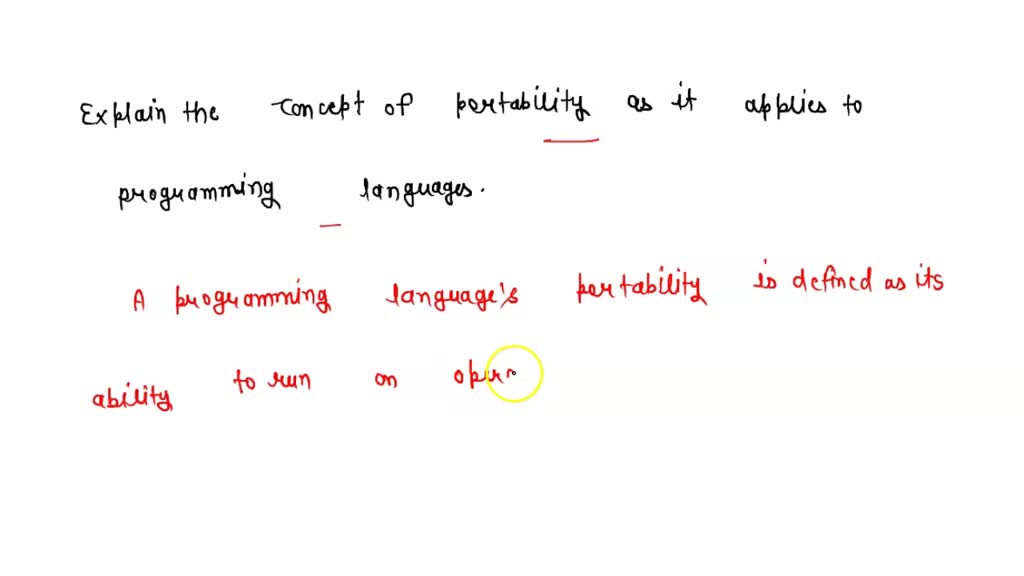 Explain the concept of portability as it applies to
programming languages.
A programming language's portability is defined as its
ability to run on oper